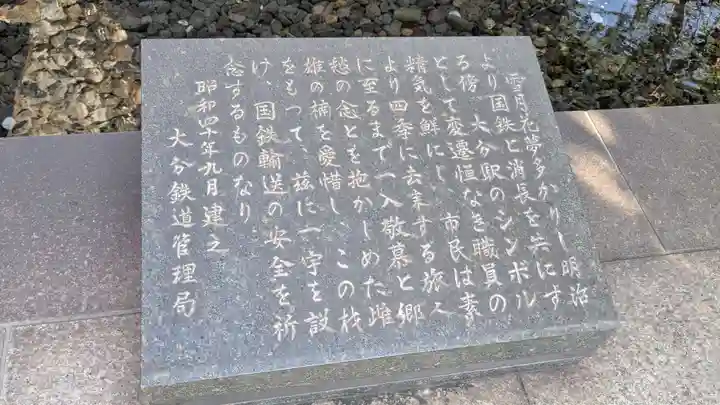 雪月花夢多かりし明治
より国鉄と消長を共にす
る傍、大分駅のシンボル
として変遷恒なき職員の
精気を鮮にし、市民は素
より四季に去来する旅人
に至るまで一入敬慕と郷
愁の念とを抱かしめた雌
雄の楠を愛惜し、この栈
をもって、茲に一宇を設
け、国鉄輸送の安全を祈
念するものなり
昭和四十年九月建之
大分鉄道管理局